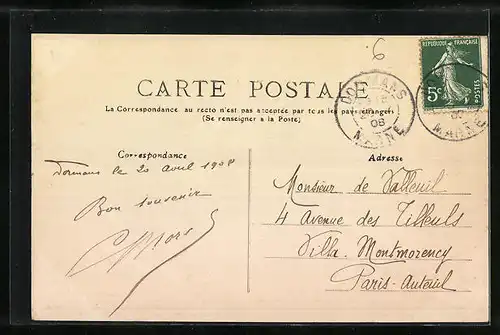 6
REPUBLIQUE FRANÇAISE
5c
POSTES
CARTE POSTALE
DORMANS
08
MARNE
La Correspondance au recto n'est pas acceptée par tous les pays étrangers
(Se renseigner à la Poste)
Correspondance
Adresse
Dormans le 20 avril 1908
Bon souvenir
Monsieur de Valleuil
4 Avenue des Tilleuls
Villa Montmorency
Paris-Auteuil